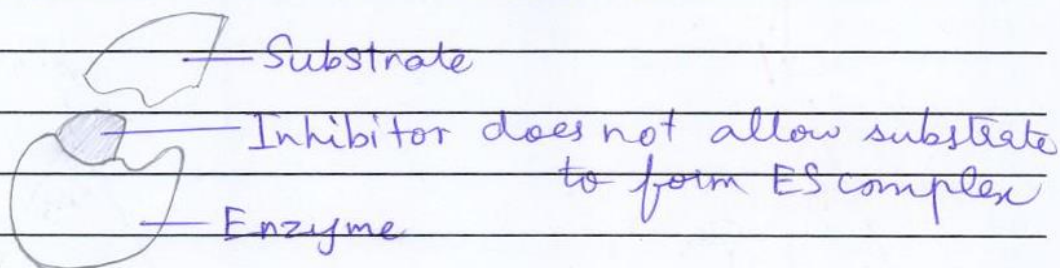 Substrate
Inhibitor does not allow substrate
to form ES complex
Enzyme